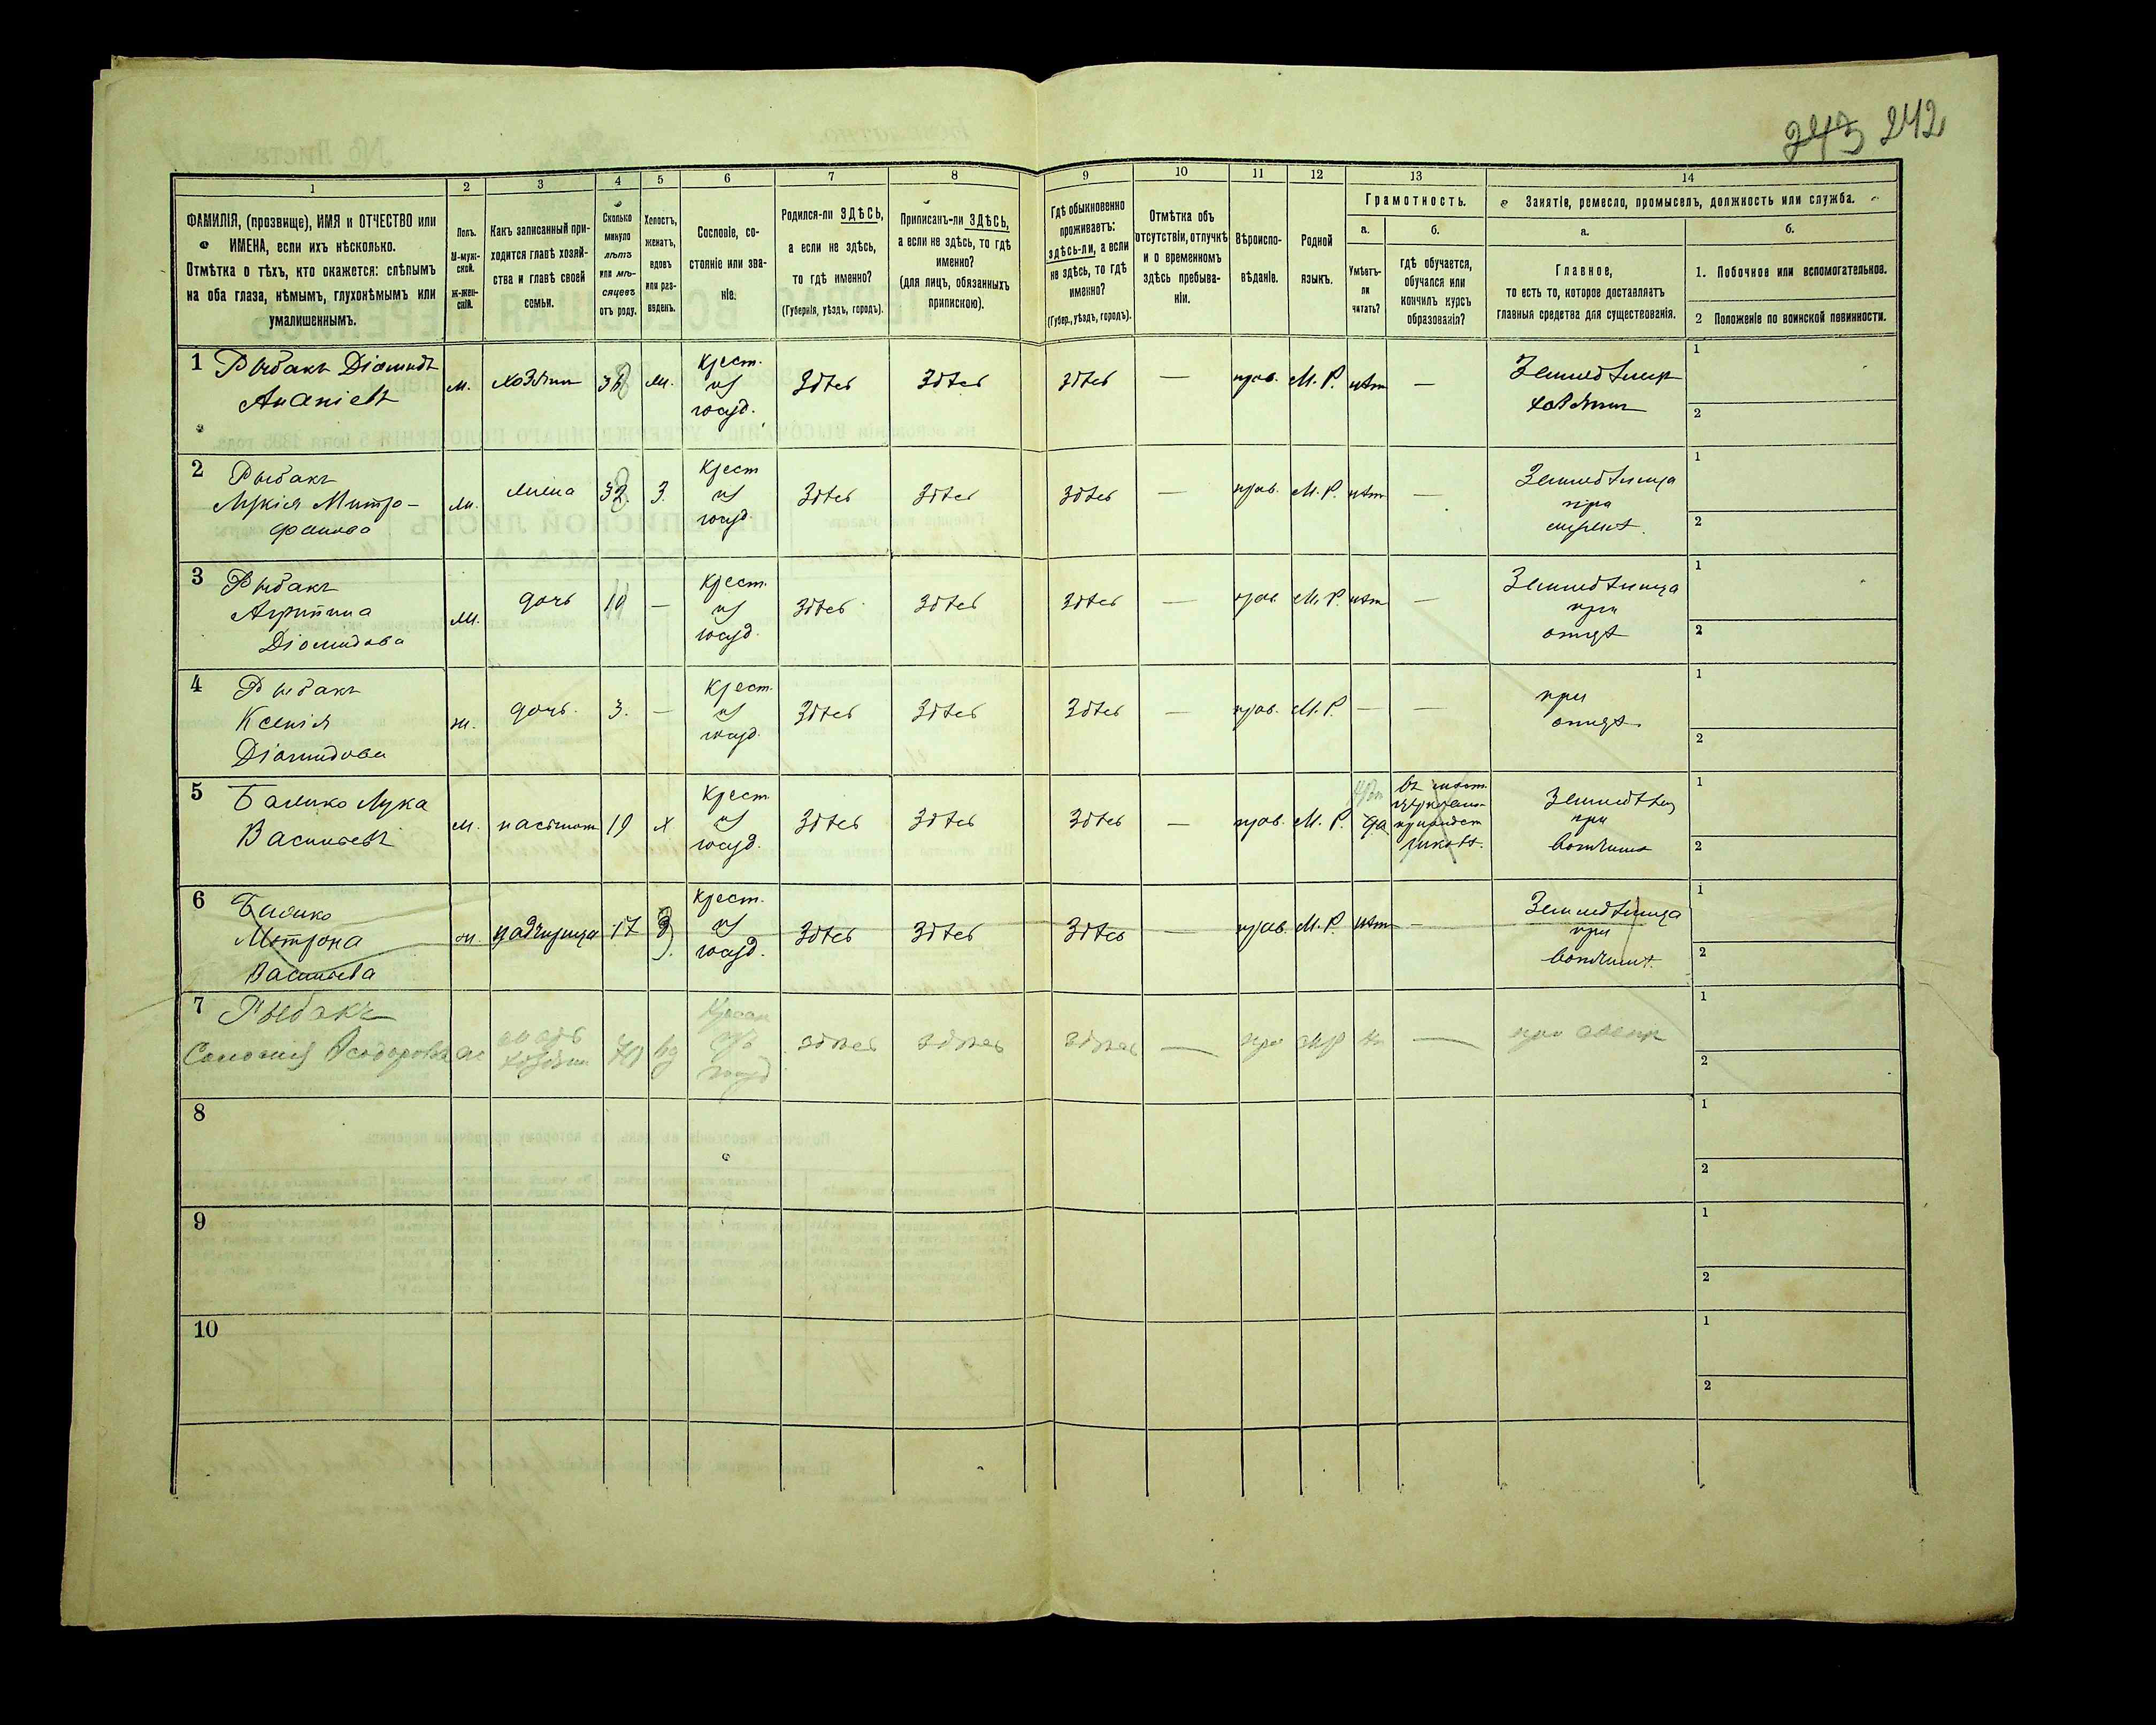 243 242
1 2 3 4 5 6 7 8 9 10 11 12 13 14
ФАМИЛІЯ, (прозвище), ИМЯ и ОТЧЕСТВО или
ИМЕНА, если ихъ нѣсколько.
Отмѣтка о тѣхъ, кто окажется: слѣпымъ
на оба глаза, нѣмымъ, глухонѣмымъ или
умалишеннымъ.
Полъ.
М-муж-
ской.
ж-жен-
скій.
Какъ записанный при-
ходится главѣ хозяй-
ства и главѣ своей
семьи.
Сколько
минуло
лѣтъ
или мѣ-
сяцевъ
отъ роду.
Холостъ,
женатъ,
вдовъ
или раз-
веденъ.
Сословіе, со-
стояніе или зва-
ніе.
Родился-ли ЗДѢСЬ,
а если не здѣсь,
то гдѣ именно?
(Губернія, уѣздъ, городъ).
Приписанъ-ли ЗДѢСЬ,
а если не здѣсь, то гдѣ
именно?
(для лицъ, обязанныхъ
припискою).
Гдѣ обыкновенно
проживаетъ:
здѣсь-ли, а если
не здѣсь, то гдѣ
именно?
(Губер., уѣздъ, городъ).
Отмѣтка объ
отсутствіи, отлучкѣ
и о временномъ
здѣсь пребыва-
ніи.
Вѣроиспо-
вѣданіе.
Родной
языкъ.
Грамотность.
а.
Умѣетъ-
ли
читать?
б.
гдѣ обучается,
обучался или
кончилъ курсъ
образованія?
Занятіе, ремесло, промыселъ, должность или служба.
а.
Главное,
то есть то, которое доставляетъ
главныя средства для существованія.
б.
1. Побочное или вспомогательное.
2 Положеніе по воинской повинности.
1 Рыбакъ Діомидъ
Ананіевъ
м. хозяинъ 38 ж.
Крест.
из
госуд.
Здѣсь Здѣсь Здѣсь — прав. М. Р. нѣт —
хозяинъ
1
2
2 Рыбакъ
Лукія Митро-
фанова
жена 32 З.
Крест
из
госуд
Здѣсь Здѣсь Здѣсь — прав. М. Р. нѣт —
Земледѣлица
при
1
2
3 Рыбакъ
Агрипина
Діомидова
дочь —
Крест.
из
госуд.
Здѣсь Здѣсь Здѣсь — прав. М. Р. нѣт —
Земледѣлица
при
отцѣ
1
2
4 Рыбакъ
Ксенія
Діомидова
ж. дочь. 3. —
Крест.
из
госуд.
Здѣсь Здѣсь Здѣсь — прав. М. Р. — —
при
отцѣ.
1
2
5 Лука
Васильевъ
м. 19 х
Крест.
из
госуд.
Здѣсь Здѣсь Здѣсь — прав. М. Р. да
при
вотчимѣ
1
2
6
Мотрона
Васильева
ж. падчерица 17
Крест.
из
госуд.
Здѣсь Здѣсь Здѣсь — прав. М. Р. нѣт —
Земледѣлица
при
вотчимѣ.
1
2
7 Рыбакъ
Федорова
мать
хозяина
70 вд
из
госуд
здѣсь здѣсь здѣсь — пра МР —
при
1
2
8
1
2
9
1
2
10
1
2